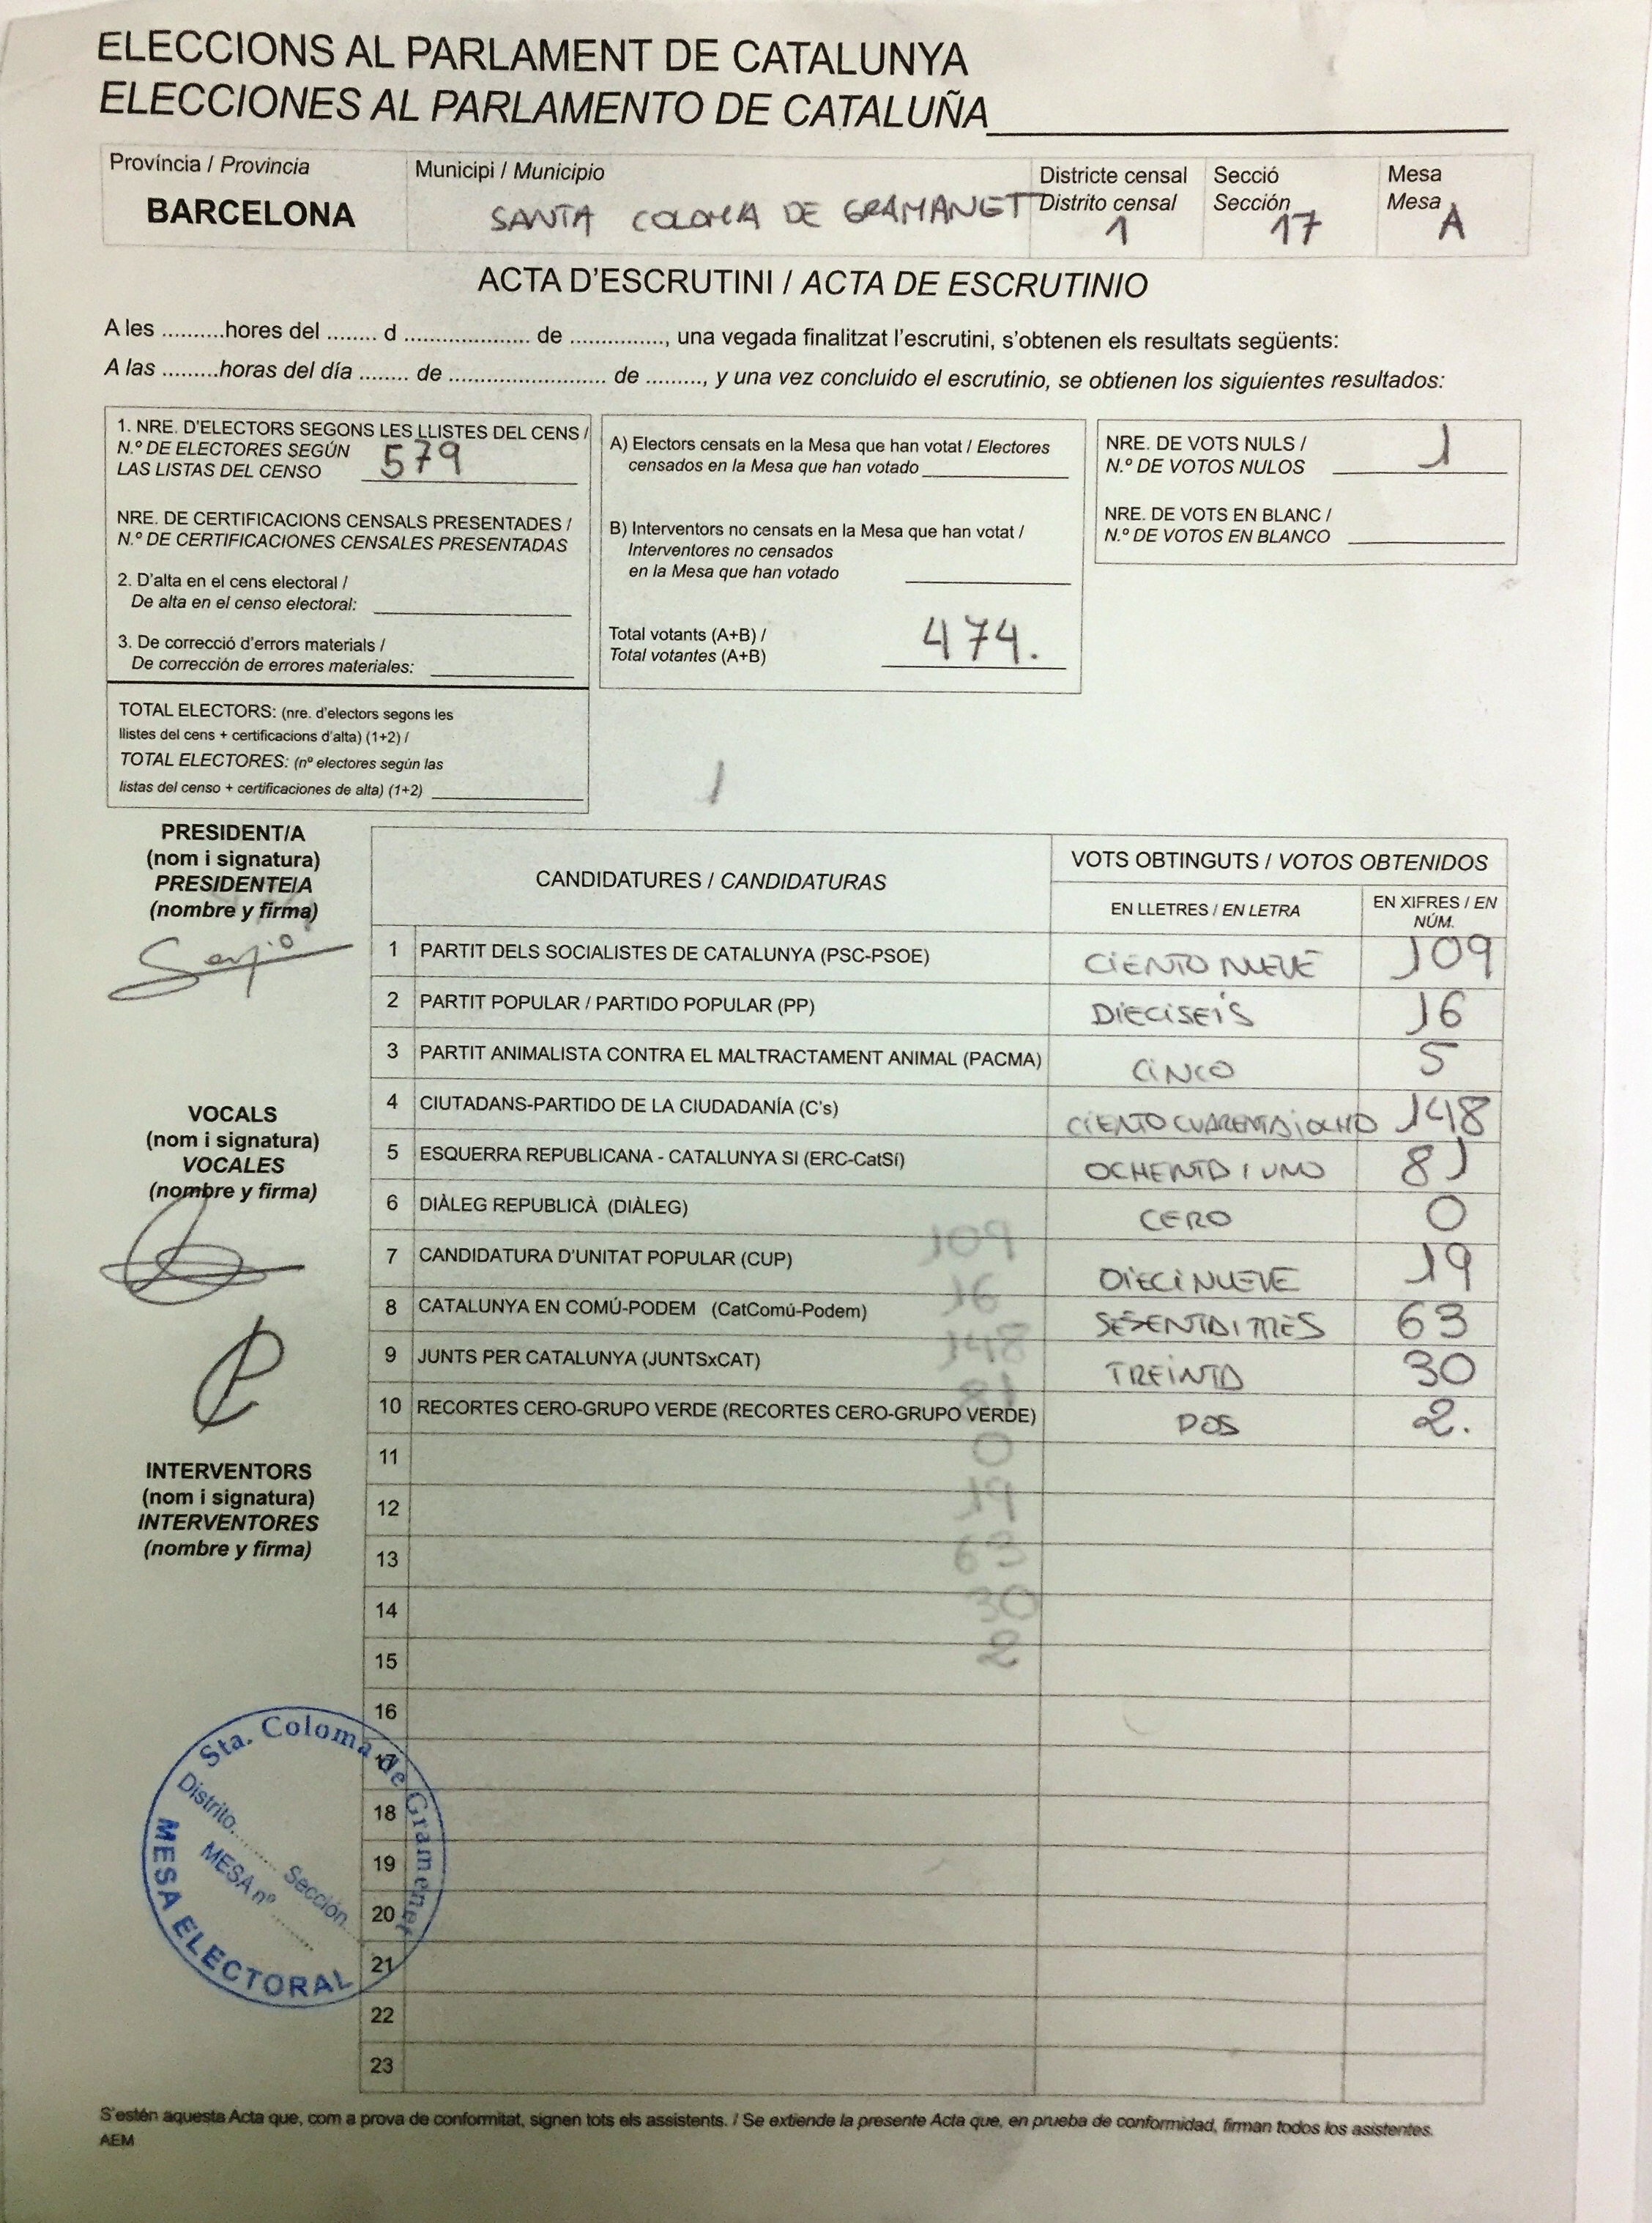 ELECCIONS AL PARLAMENT DE CATALUNYA
ELECCIONES AL PARLAMENTO DE CATALUÑA
Província / Provincia
BARCELONA
Municipi / Municipio
SANTA COLOMA DE GRAMANET
Districte censal
Distrito censal
1
Secció
Sección
17
Mesa
Mesa
A
ACTA D'ESCRUTINI / ACTA DE ESCRUTINIO
A les ..........hores del ........ d ..................... de ................, una vegada finalitzat l'escrutini, s'obtenen els resultats següents:
A las .........horas del día ........ de .......................... de ........., y una vez concluido el escrutinio, se obtienen los siguientes resultados:
1. NRE. D'ELECTORS SEGONS LES LLISTES DEL CENS /
N.º DE ELECTORES SEGÚN
LAS LISTAS DEL CENSO 579
NRE. DE CERTIFICACIONS CENSALS PRESENTADES /
N.º DE CERTIFICACIONES CENSALES PRESENTADAS
2. D'alta en el cens electoral /
De alta en el censo electoral:
3. De correcció d'errors materials /
De corrección de errores materiales:
TOTAL ELECTORS: (nre. d'electors segons les
llistes del cens + certificacions d'alta) (1+2) /
TOTAL ELECTORES: (nº electores según las
listas del censo + certificaciones de alta) (1+2)
A) Electors censats en la Mesa que han votat / Electores
censados en la Mesa que han votado
B) Interventors no censats en la Mesa que han votat /
Interventores no censados
en la Mesa que han votado
Total votants (A+B) /
Total votantes (A+B) 474.
NRE. DE VOTS NULS /
N.º DE VOTOS NULOS 1
NRE. DE VOTS EN BLANC /
N.º DE VOTOS EN BLANCO
1
PRESIDENT/A
(nom i signatura)
PRESIDENTE/A
(nombre y firma)
Sergio
VOCALS
(nom i signatura)
VOCALES
(nombre y firma)
INTERVENTORS
(nom i signatura)
INTERVENTORES
(nombre y firma)
CANDIDATURES / CANDIDATURAS
VOTS OBTINGUTS / VOTOS OBTENIDOS
EN LLETRES / EN LETRA
EN XIFRES / EN
NÚM.
1 PARTIT DELS SOCIALISTES DE CATALUNYA (PSC-PSOE) CIENTO NUEVE 109
2 PARTIT POPULAR / PARTIDO POPULAR (PP) DIECISEIS 16
3 PARTIT ANIMALISTA CONTRA EL MALTRACTAMENT ANIMAL (PACMA) CINCO 5
4 CIUTADANS-PARTIDO DE LA CIUDADANÍA (C's) CIENTO CUARENTAIOCHO 148
5 ESQUERRA REPUBLICANA - CATALUNYA SI (ERC-CatSí) OCHENTA I UNO 81
6 DIÀLEG REPUBLICÀ (DIÀLEG) CERO 0
7 CANDIDATURA D'UNITAT POPULAR (CUP) DIECINUEVE 19
8 CATALUNYA EN COMÚ-PODEM (CatComú-Podem) SESENTAITRES 63
9 JUNTS PER CATALUNYA (JUNTSxCAT) TREINTA 30
10 RECORTES CERO-GRUPO VERDE (RECORTES CERO-GRUPO VERDE) DOS 2.
109
16
148
81
0
19
63
30
2
11
12
13
14
15
16
17
18
19
20
21
22
23
Sta. Coloma de Gramenet
Distrito......... Sección........
MESA nº ........
MESA ELECTORAL
S'estén aquesta Acta que, com a prova de conformitat, signen tots els assistents. / Se extiende la presente Acta que, en prueba de conformidad, firman todos los asistentes.
AEM